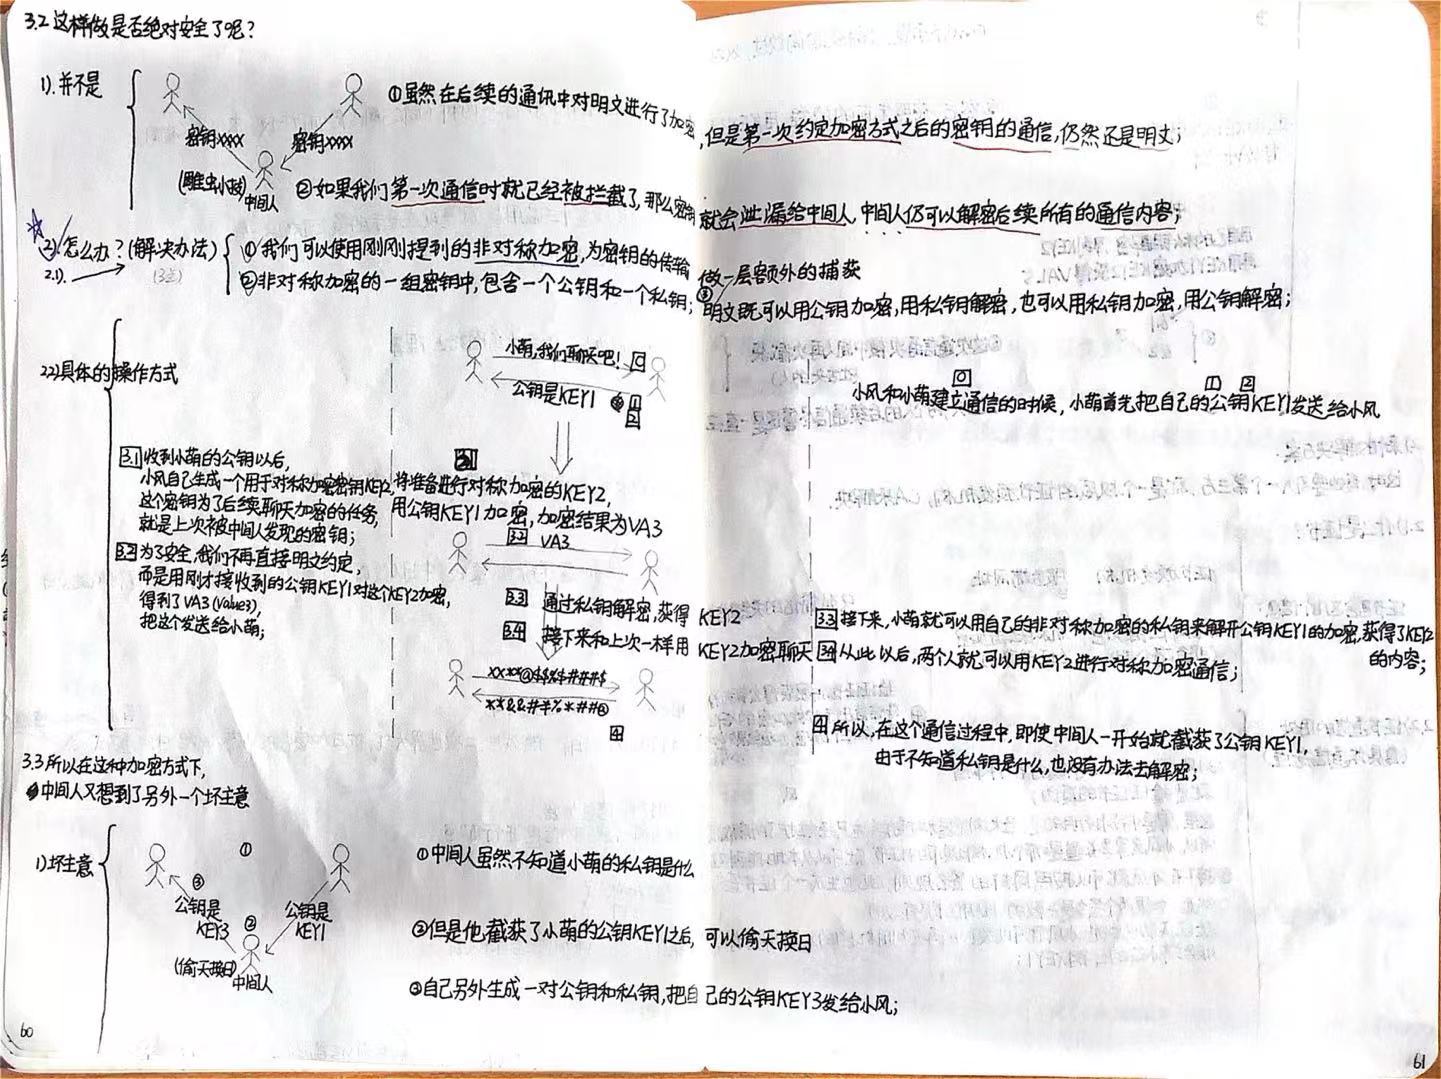 3.2 这样做是否绝对安全了呢?
1).并不是
密钥xxxx 密钥xxxx
(雕虫小技) 中间人
①虽然在后续的通讯中对明文进行了加密,但是第一次约定加密方式之后的密钥的通信,仍然还是明文;
②如果我们第一次通信时就已经被拦截了,那么密钥就会泄漏给中间人,中间人仍可以解密后续所有的通信内容;
2).怎么办?(解决办法)
2.1). (3点)
①我们可以使用刚刚提到的非对称加密,为密钥的传输做一层额外的捕获
②非对称加密的一组密钥中,包含一个公钥和一个私钥;③明文既可以用公钥加密,用私钥解密,也可以用私钥加密,用公钥解密;
2.2)具体的操作方式
小萌,我们聊天吧! 0
公钥是KEY1 1
2
0 1 2
小风和小萌建立通信的时候,小萌首先把自己的公钥KEY1发送给小风
3.1 收到小萌的公钥以后,
小风自己生成一个用于对称加密密钥KEY2,
这个密钥为了后续聊天加密的任务,
就是上次被中间人发现的密钥;
3.2 为了安全,我们不再直接明文约定,
而是用刚才接收到的公钥KEY1对这个KEY2加密,
得到了VA3(Value3),
把这个发送给小萌;
3.1
将准备进行对称加密的KEY2,
用公钥KEY1加密,加密结果为VA3
3.2 VA3
3.3 通过私钥解密,获得 KEY2
3.4 接下来和上次一样用 KEY2加密聊天
xx**@$$%$###$
**&&#%*##@
4
3.3 接下来,小萌就可以用自己的非对称加密的私钥来解开公钥KEY1的加密,获得了KEY2
的内容;
3.4 从此以后,两个人就可以用KEY2进行对称加密通信;
4 所以,在这个通信过程中,即使中间人一开始就截获了公钥KEY1,
由于不知道私钥是什么,也没有办法去解密;
3.3 所以在这种加密方式下,
中间人又想到了另外一个坏主意
1)坏主意
①
③
公钥是
KEY3
②
公钥是
KEY1
(偷天换日) 中间人
①中间人虽然不知道小萌的私钥是什么
②但是他截获了小萌的公钥KEY1之后,可以偷天换日
③自己另外生成一对公钥和私钥,把自己的公钥KEY3发给小风;
60
61